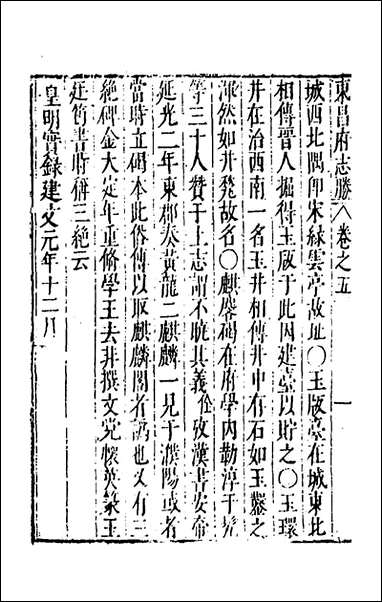 東昌府志勝　卷之五　一
城西北隅卽宋緑雲亭故址〇玉版臺在城東北
相傳晋人掘得玉版于此因建臺以貯之〇玉環
井在治西南一名玉井相傳井中有石如玉甃之
渾然如井甃故名〇麒麟碣在府學内勒淳于髠
等三十人贊于上志謂不曉其義
攷漢書安帝
延光二年東郡奏黃龍二麒麟一見于濮陽或者
當時立碣本此俗傳以取麒麟閣者譌也又有三
絶碑金大定年重脩學王去非撰文党懷英篆王
廷筠書時稱三絶云
皇明實録建文元年十二月